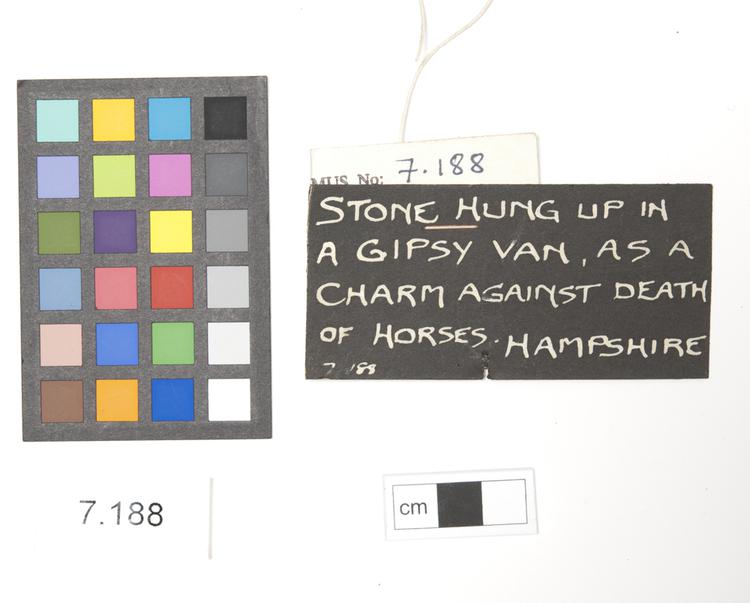 MUS. No: 7.188
STONE HUNG UP IN
A GIPSY VAN, AS A
CHARM AGAINST DEATH
OF HORSES. HAMPSHIRE
7 188
7.188
cm